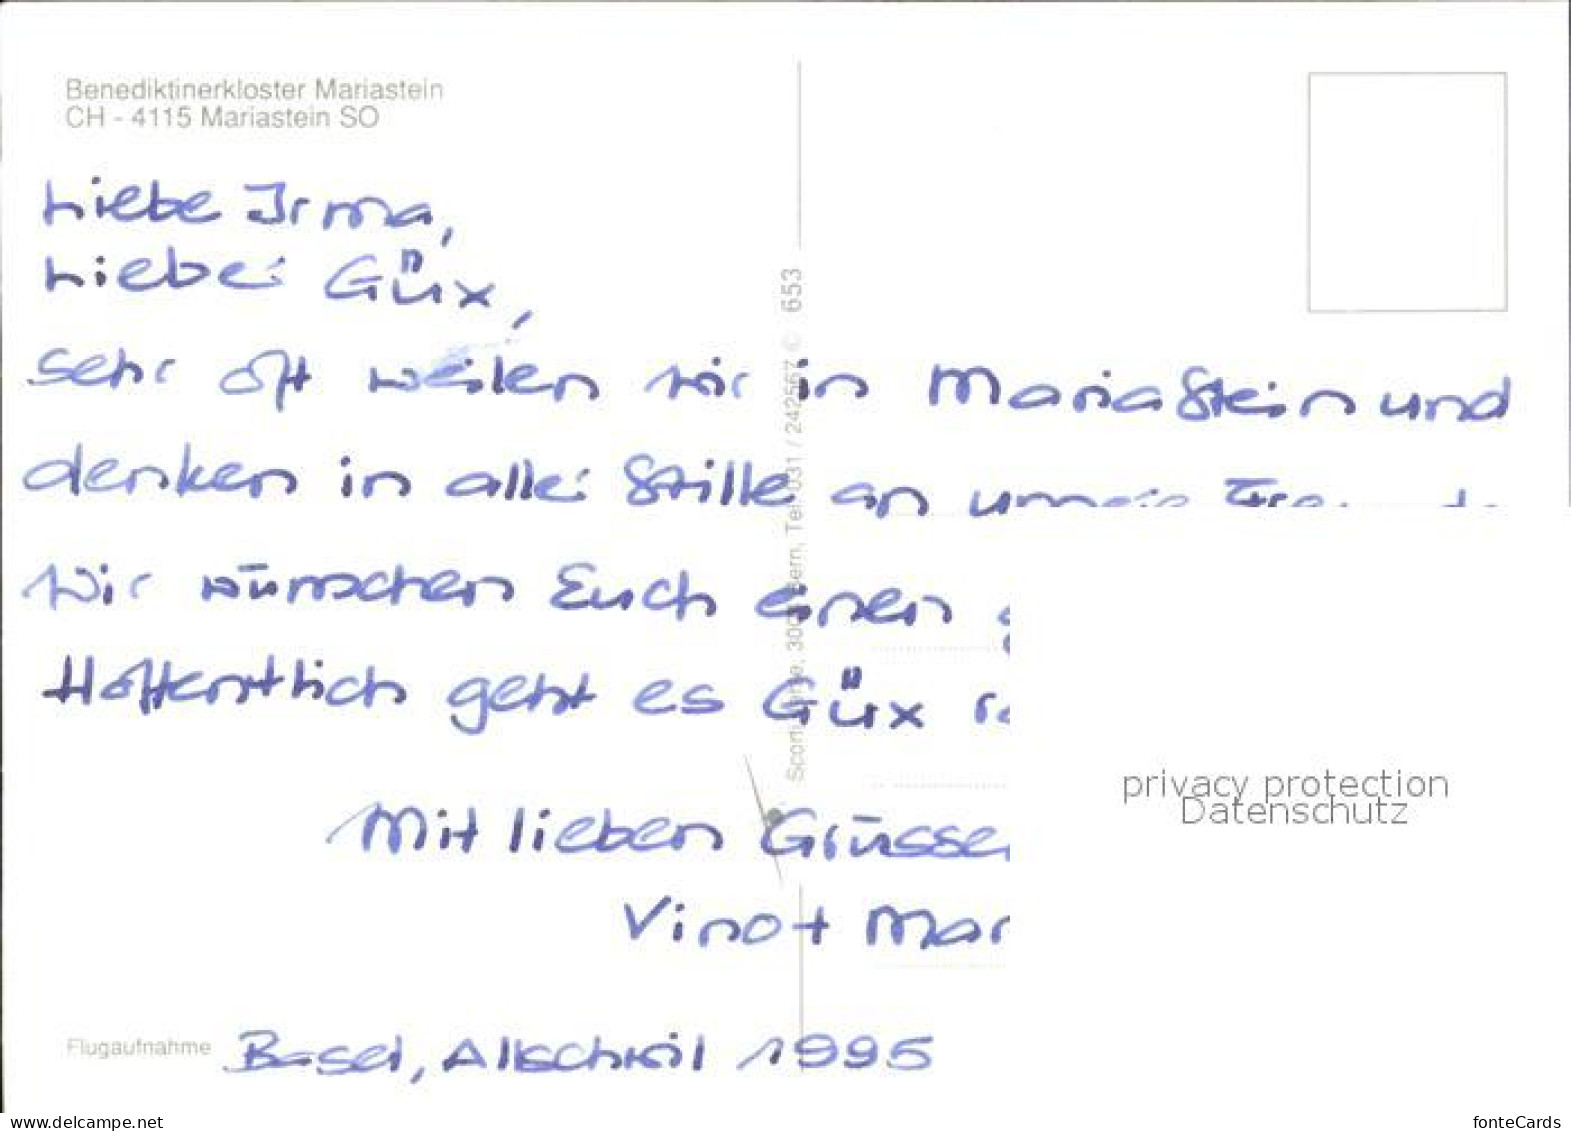 Benediktinerkloster Mariastein
CH - 4115 Mariastein SO
Liebe Irma,
Lieber Güx,
sehr oft weilen wir in Mariastein und
denken in aller Stille an unsere
Wir wünschen Euch einen
Hoffentlich geht es Güx
Mit lieben Grüssen
Vino + Mar
Flugaufnahme Basel, Allschwil 1995
653
3000 Bern, Tel. 031 / 242567 ©
privacy protection
Datenschutz
www.delcampe.net
fonteCards